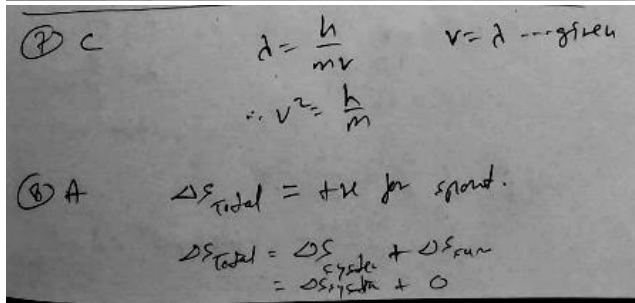 ⑦ C λ = h/mv v = λ ---given
∴ v² = h/m
⑧ A ΔS Total = +ve for spont.
ΔS Total = ΔS system + ΔS surr
= ΔS system + 0